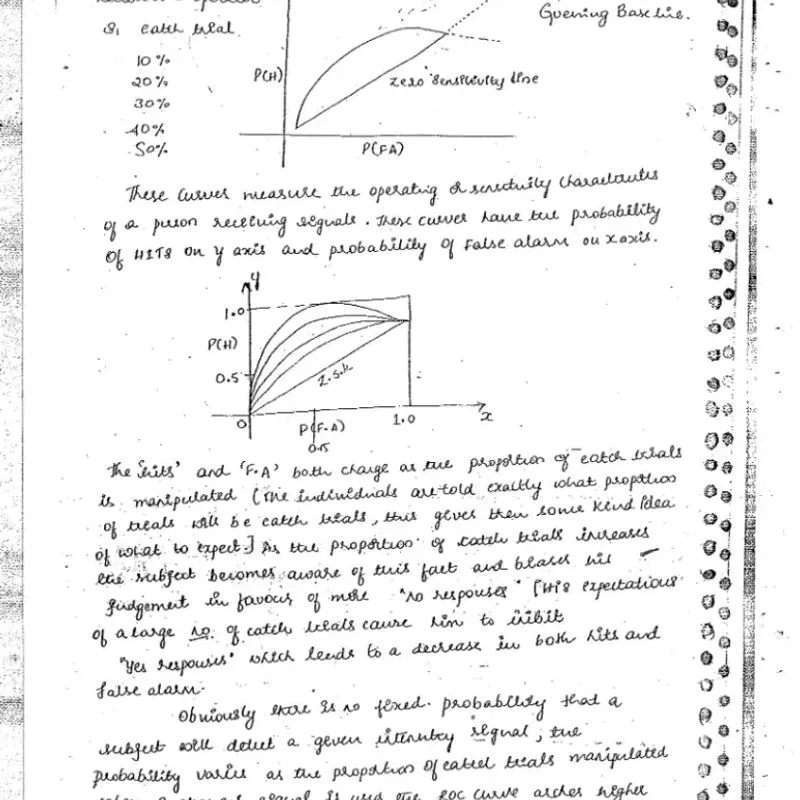 Guening Baseline.
% catch trial
10 %
20 %
30 %
40 %
50 %
P(H)
zero sensitivity line
P(FA)
These curves measure the operating & sensitivity characteristics
of a person receiving signals. These curves have the probability
of HITS on y axis and probability of False alarm on x axis.
y
1.0
P(H)
0.5
Z.S.L
0
P(F.A)
1.0
x
0.5
The 'hits' and 'F.A' both change as the proportion of catch trials
is manipulated (The individuals are told exactly what proportion
of trials will be catch trials, this gives them some kind idea
of what to expect.] As the proportion of catch trials increases
the subject becomes aware of this fact and biases his
judgement in favour of more "no responses" [His expectations
of a large no. of catch trials cause him to inibit
"Yes responses" which leads to a decrease in both hits and
false alarm.
Obviously there is no fixed probability that a
subject will detect a given intensity signal, the
probability varies as the proportion of catch trials manipulated
signal is used the ROC curve arches higher